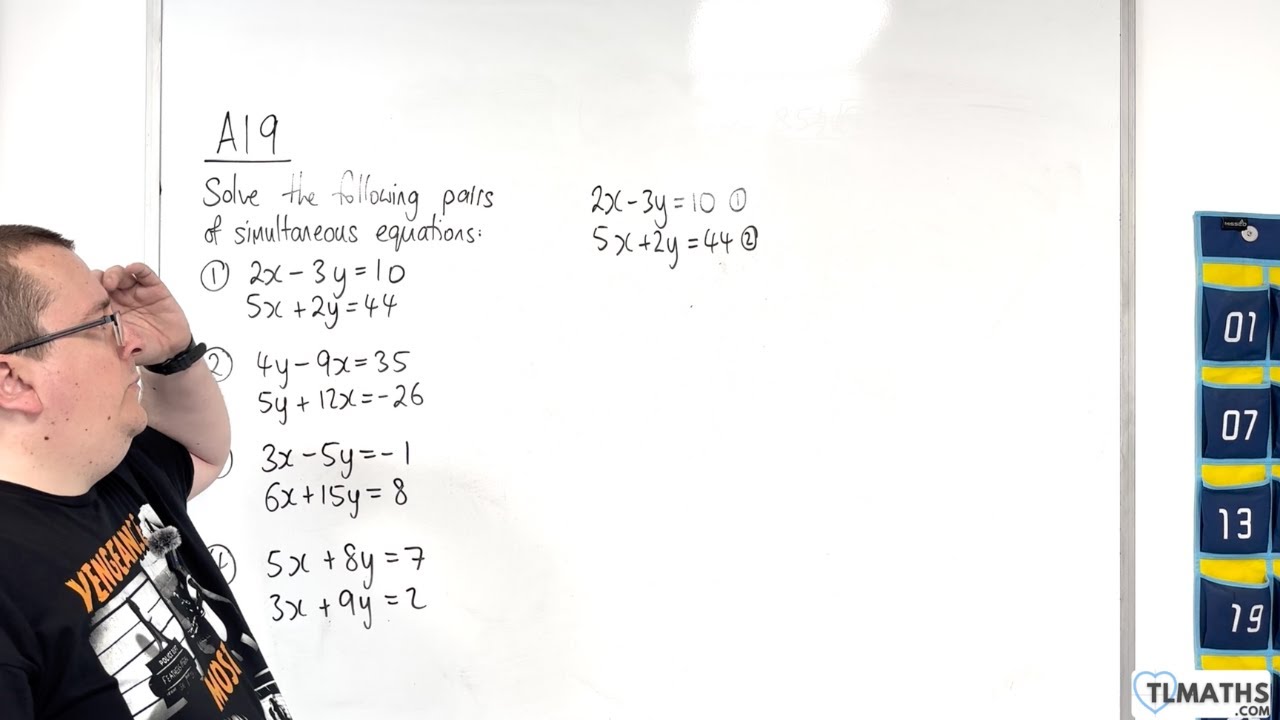 A19
Solve the following pairs
of simultaneous equations:
① 2x - 3y = 10
5x + 2y = 44
② 4y - 9x = 35
5y + 12x = -26
3x - 5y = -1
6x + 15y = 8
④ 5x + 8y = 7
3x + 9y = 2
2x - 3y = 10 ①
5x + 2y = 44 ②
VENGEANCE
MOST
01
07
13
19
TLMATHS
.COM